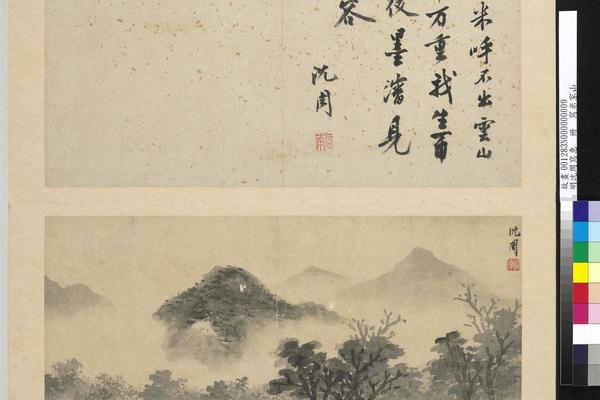 米呼不出雲山
万重我生百
後墨瀋見
容
沈周
沈周
故畫 001283N000000009
明沈周寫意 冊 寫米家山